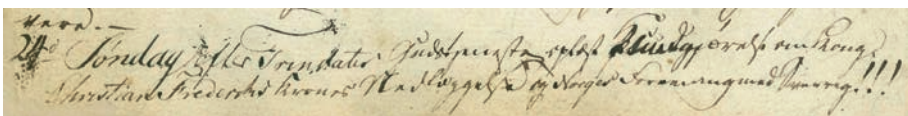 være. —
24de Søndag Efter Trinitatis. Gudstjeneste oplæst Kundgjørelse om Kong
Christian Frederiks Krones Nedlæggelse og Norges Foreening med Sverrig!!!